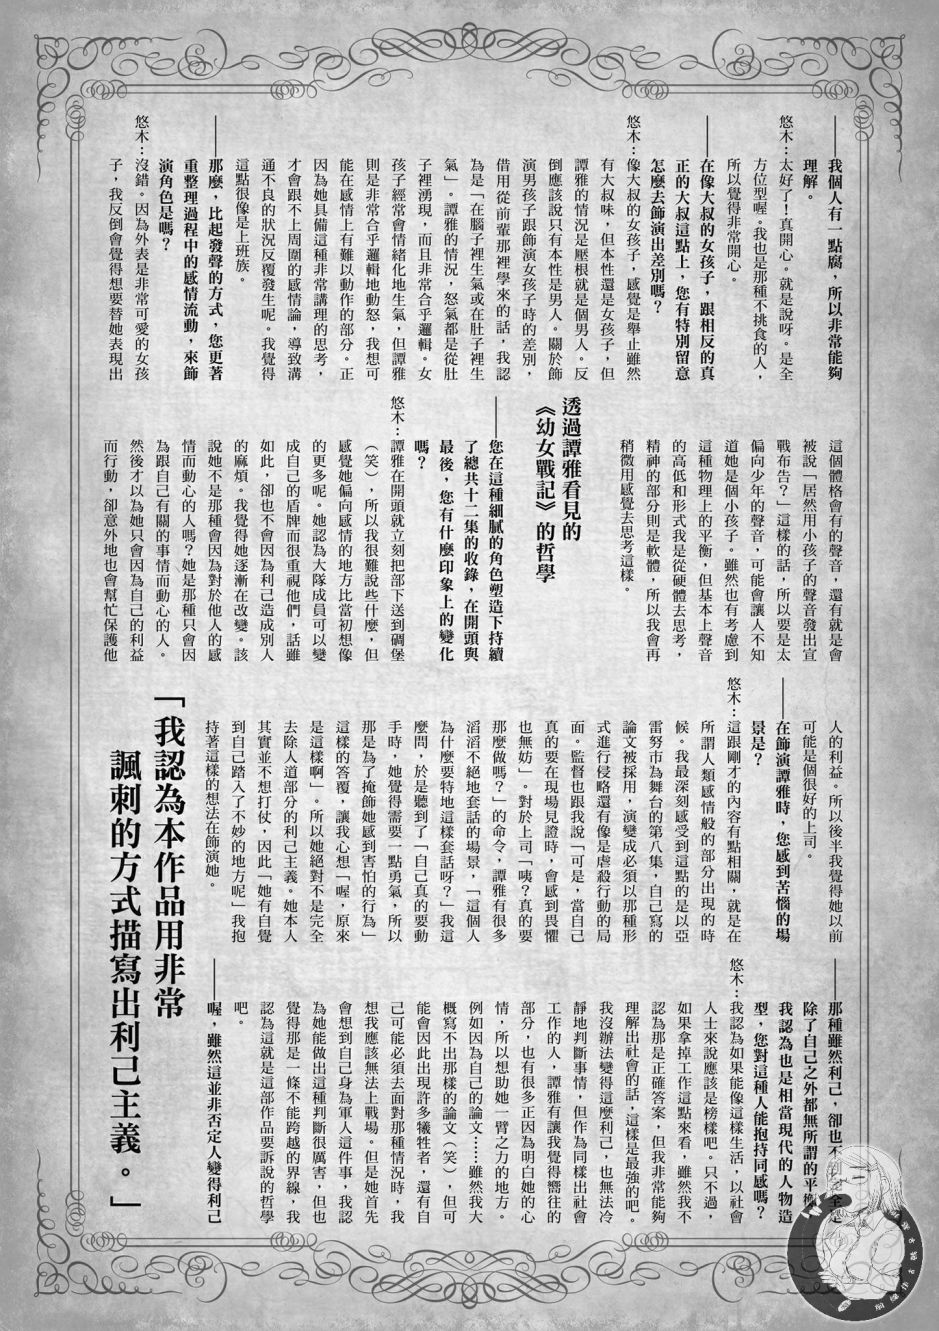 ——我個人有一點腐，所以非常能夠
理解。
悠木：太好了！真開心。就是說呀。是全
方位型喔。我也是那種不挑食的人，
所以覺得非常開心。
——在像大叔的女孩子，跟相反的真
正的大叔這點上，您有特別留意
怎麼去飾演出差別嗎？
悠木：像大叔的女孩子，感覺是舉止雖然
有大叔味，但本性還是女孩子，但
譚雅的情況是壓根就是個男人。反
倒應該說只有本性是男人。關於飾
演男孩子跟飾演女孩子時的差別，
借用從前輩那裡學來的話，我認
為是「在腦子裡生氣或在肚子裡生
氣」。譚雅的情況，怒氣都是從肚
子裡湧現，而且非常合乎邏輯。女
孩子經常會情緒化地生氣，但譚雅
則是非常合乎邏輯地動怒，我想可
能在感情上有難以動作的部分。正
因為她具備這種非常講理的思考，
才會跟不上周圍的感情論，導致溝
通不良的狀況反覆發生呢。我覺得
這點很像是上班族。
——那麼，比起發聲的方式，您更著
重整理過程中的感情流動，來飾
演角色是嗎？
悠木：沒錯。因為外表是非常可愛的女孩
子，我反倒會覺得想要替她表現出
這個體格會有的聲音，還有就是會
被說「居然用小孩子的聲音發出宣
戰布告？」這樣的話，所以要是太
偏向少年的聲音，可能會讓人不知
道她是個小孩子。雖然也有考慮到
這種物理上的平衡，但基本上聲音
的高低和形式我是從硬體去思考，
精神的部分則是軟體，所以我會再
稍微用感覺去思考這樣。
透過譚雅看見的
《幼女戰記》的哲學
——您在這種細膩的角色塑造下持續
了總共十二集的收錄，在開頭與
最後，您有什麼印象上的變化
嗎？
悠木：譚雅在開頭就立刻把部下送到碉堡
（笑），所以我很難說些什麼，但
感覺她偏向感情的地方比當初想像
的更多呢。她認為大隊成員可以變
成自己的盾牌而很重視他們，話雖
如此，卻也不會因為利己造成別人
的麻煩。我覺得她逐漸在改變。該
說她不是那種會因為對於他人的感
情而動心的人嗎？她是那種只會因
為跟自己有關的事情而動心的人。
然後才以為她只會因為自己的利益
而行動，卻意外地也會幫忙保護他
人的利益。所以後半我覺得她以前
可能是個很好的上司。
——在飾演譚雅時，您感到苦惱的場
景是？
悠木：這跟剛才的內容有點相關，就是在
所謂人類感情般的部分出現的時
候。我最深刻感受到這點的是以亞
雷努市為舞台的第八集，自己寫的
論文被採用，演變成必須以那種形
式進行侵略還有像是虐殺行動的局
面。監督也跟我說「可是，當自己
真的要在現場見證時，會感到畏懼
也無妨」。對於上司「咦？真的要
那麼做嗎？」的命令，譚雅有很多
滔滔不絕地套話的場景，「這個人
為什麼要特地這樣套話呀？」我這
麼問，於是聽到了「自己真的要動
手時，她覺得需要一點勇氣，所以
那是為了掩飾她感到害怕的行為」
這樣的答覆，讓我心想「喔，原來
是這樣啊」。所以她絕對不是完全
去除人道部分的利己主義。她本人
其實並不想打仗，因此「她有自覺
到自己踏入了不妙的地方呢」我抱
持著這樣的想法在飾演她。
「我認為本作品用非常
諷刺的方式描寫出利己主義。」
——那種雖然利己，卻也不
除了自己之外都無所謂的平
我認為也是相當現代的人物造
型，您對這種人能抱持同感嗎？
悠木：我認為如果能像這樣生活，以社會
人士來說應該是榜樣吧。只不過，
如果拿掉工作這點來看，雖然我不
認為那是正確答案，但我非常能夠
理解出社會的話，這樣是最強的吧。
我沒辦法變得這麼利己，也無法冷
靜地判斷事情，但作為同樣出社會
工作的人，譚雅有讓我覺得嚮往的
部分，也有很多正因為明白她的心
情，所以想助她一臂之力的地方。
例如因為自己的論文……雖然我大
概寫不出那樣的論文（笑），但可
能會因此出現許多犧牲者，還有自
己可能必須去面對那種情況時，我
想我應該無法上戰場。但是她首先
會想到自己身為軍人這件事，我認
為她能做出這種判斷很厲害，但也
覺得那是一條不能跨越的界線，我
認為這就是這部作品要訴說的哲學
吧。
——喔，雖然這並非否定人變得利己